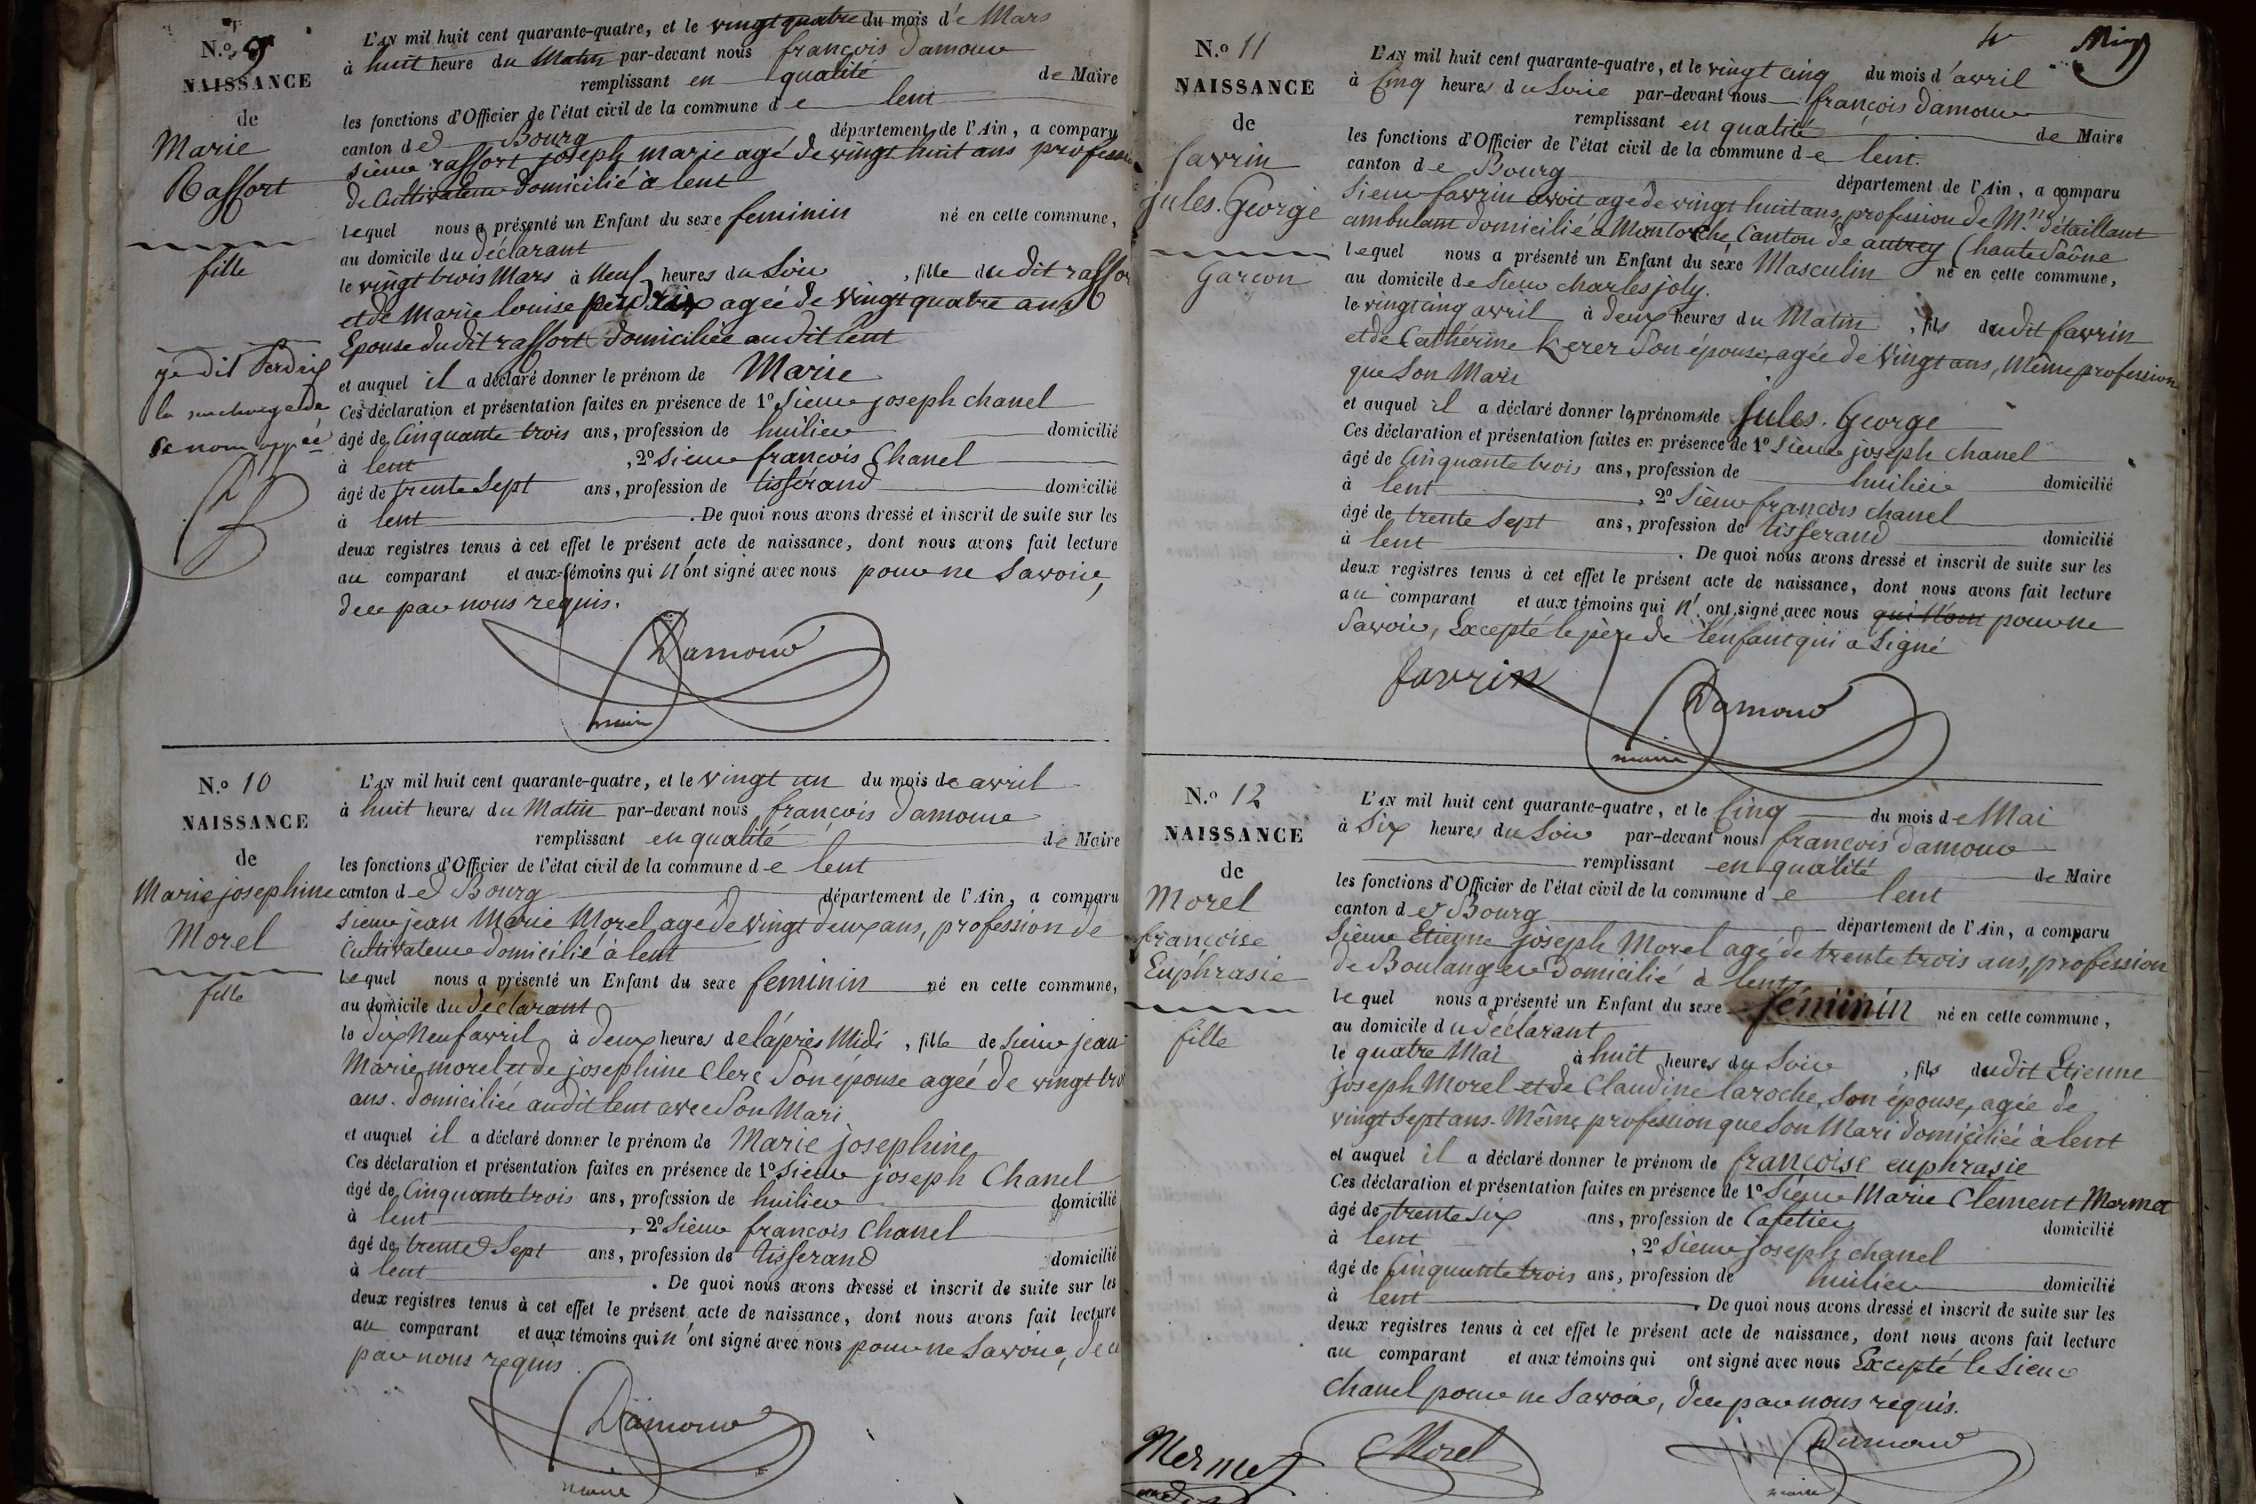 N.º 9
NAISSANCE
de
Marie
Raffort
fille
ye dit Perdrix
la surcharge de
ce nom appée
L'AN mil huit cent quarante-quatre, et le vingt quatre du mois de Mars
à huit heure du Matin par-devant nous françois Damour
remplissant en qualité de Maire
les fonctions d'Officier de l'état civil de la commune de lent
canton de Bourg département de l'Ain, a comparu
sieur raffort joseph marie agé de vingt huit ans profession
de Cultivateur domicilié à lent
lequel nous a présenté un Enfant du sexe feminin né en cette commune,
au domicile du déclarant
le vingt trois Mars à Neuf heures du Soir, fille du dit raffor
et de Marie louise perdrix agée de vingt quatre ans
Epouse du dit raffort domiciliée au dit lent
et auquel il a déclaré donner le prénom de Marie
Ces déclaration et présentation faites en présence de 1º Sieur joseph chanel
âgé de Cinquante trois ans, profession de huilier domicilié
à lent, 2º Sieur francois Chanel
âgé de trente Sept ans, profession de tissérand domicilié
à lent. De quoi nous avons dressé et inscrit de suite sur les
deux registres tenus à cet effet le présent acte de naissance, dont nous avons fait lecture
au comparant et aux témoins qui n'ont signé avec nous pour ne Savoir,
de ce par nous requis.
Damour
maire
N.º 10
NAISSANCE
de
Marie josephine
Morel
fille
L'AN mil huit cent quarante-quatre, et le vingt un du mois de avril
à huit heures du Matin par-devant nous françois Damour
remplissant en qualité de Maire
les fonctions d'Officier de l'état civil de la commune de lent
canton de Bourg département de l'Ain, a comparu
Sieur jean Marie Morel agé de vingt deux ans, profession de
Cultivateur domicilié à lent
Lequel nous a présenté un Enfant du sexe feminin né en cette commune,
au domicile du déclarant
le dix Neuf avril à deux heures de l'après Midi, fille de Sieur jean
Marie morel et de josephine Clerc Son épouse agée de vingt tro
ans. domiciliée au dit lent avec Son Mari
et auquel il a déclaré donner le prénom de Marie josephine
Ces déclaration et présentation faites en présence de 1º Sieur joseph Chanel
âgé de Cinquante trois ans, profession de huilier domicilié
à lent, 2º Sieur francois Chanel
âgé de trente Sept ans, profession de tisserand domicilié
à lent. De quoi nous avons dressé et inscrit de suite sur les
deux registres tenus à cet effet le présent acte de naissance, dont nous avons fait lecture
au comparant et aux témoins qui n'ont signé avec nous pour ne Savoir, de ce
par nous requis.
Damour
maire
4
N.º 11
NAISSANCE
de
favrin
jules. George
Garcon
L'AN mil huit cent quarante-quatre, et le vingt cinq du mois d'avril
à Cinq heures du Soir par-devant nous françois Damour
remplissant en qualité de Maire
les fonctions d'Officier de l'état civil de la commune de lent.
canton de Bourg département de l'Ain, a comparu
Sieur favrin agé de vingt huit ans, profession de M.nd détaillant
ambulant domicilié à Montorche Canton de autrey (haute Saône
lequel nous a présenté un Enfant du sexe Masculin né en cette commune,
au domicile de Sieur charles joly.
le vingt cinq avril à deux heures du Matin, fils du dit favrin
et de Cathérine Kerer Son épouse, agée de vingt ans, Même profession
que Son Mari
et auquel il a déclaré donner les prénoms de Jules. George
Ces déclaration et présentation faites en présence de 1º Sieur joseph chanel
âgé de Cinquante trois ans, profession de huilier domicilié
à lent, 2º Sieur francois chanel
âgé de trente Sept ans, profession de tisserand domicilié
à lent. De quoi nous avons dressé et inscrit de suite sur les
deux registres tenus à cet effet le présent acte de naissance, dont nous avons fait lecture
au comparant et aux témoins qui n'ont signé avec nous qui n'ont pour ne
Savoir, Excepté le père de l'enfant qui a Signé
favrin
Damour
maire
N.º 12
NAISSANCE
de
Morel
françoise
Euphrasie
fille
L'AN mil huit cent quarante-quatre, et le Cinq du mois de Mai
à Six heures du Soir par-devant nous francois Damour
remplissant en qualité de Maire
les fonctions d'Officier de l'état civil de la commune de lent
canton de Bourg département de l'Ain, a comparu
Sieur Etienne joseph Morel agé de trente trois ans, profession
de Boulanger Domicilié à lent
lequel nous a présenté un Enfant du sexe féminin né en cette commune,
au domicile du déclarant
le quatre Mai à huit heures du Soir, fils du dit Etienne
joseph Morel et de Claudine laroche, Son épouse, agée de
vingt Sept ans. Même profession que Son Mari domiciliée à lent
et auquel il a déclaré donner le prénom de françoise euphrasie
Ces déclaration et présentation faites en présence de 1º Sieur Marie Clement Mermet
âgé de trente six ans, profession de Cafetier domicilié
à lent, 2º Sieur joseph chanel
âgé de Cinquante trois ans, profession de huilier domicilié
à lent. De quoi nous avons dressé et inscrit de suite sur les
deux registres tenus à cet effet le présent acte de naissance, dont nous avons fait lecture
au comparant et aux témoins qui ont signé avec nous Excepté le Sieur
Chanel pour ne Savoir, de ce par nous requis.
Mermet
Morel
Damour
maire